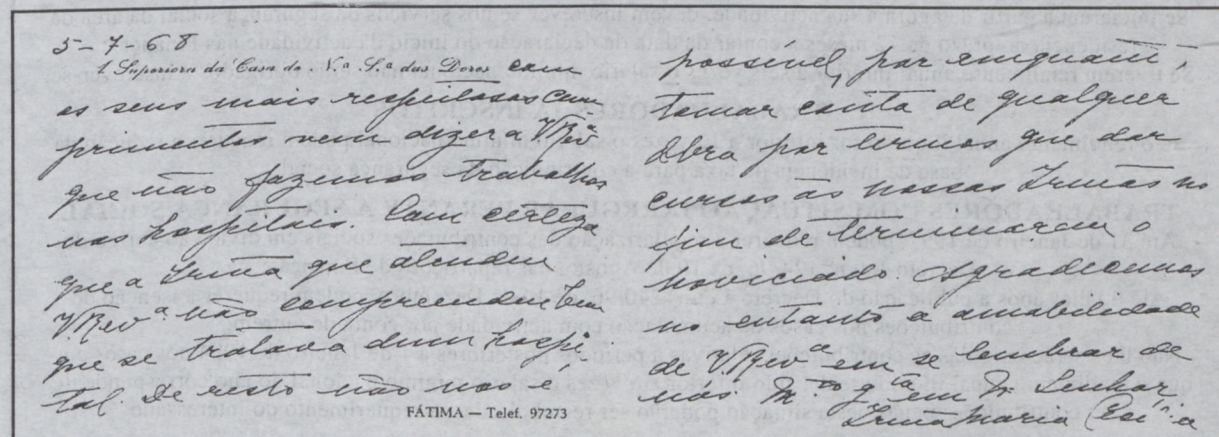 5-7-68
A Superiora da Casa de N.ª S.ª das Dores com
os seus mais respeitosos cum
primentos vem dizer a V. Rev.ª
que não fazemos trabalhos
nos hospitais. Com certeza
que a Irmã que atendeu
V. Rev.ª não compreendeu bem
que se tratava dum hospi
tal. De resto não nos é,
FÁTIMA — Telef. 97273
possível, por enquanto
tomar conta de qualquer
Obra por termos que dar
cursos às nossas Irmãs no
fim de terminarem o
noviciado. Agradecemos
no entanto a amabilidade
de V. Rev.ª em se lembrar de
nós. M.to g.ta em N. Senhor
Irmã Maria